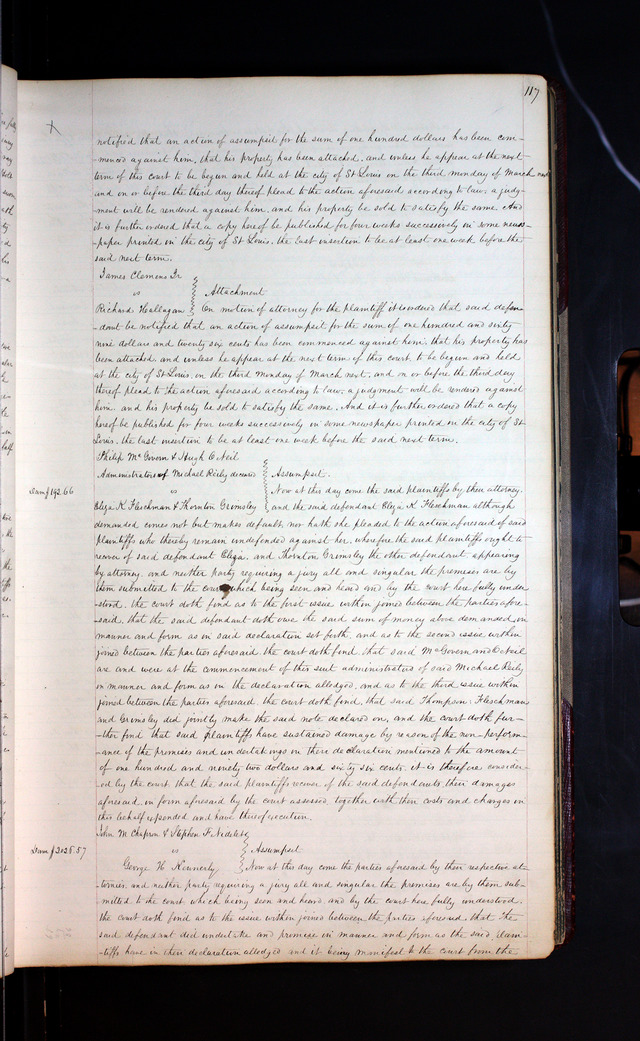 117
notified that an action of assumpsit for the sum of one hundred dollars has been com-
-menced against him, that his property has been attached, and unless he appear at the next
term of this court to be begun and held at the city of St Louis on the third monday of March next
and on or before the third day thereof plead to the action aforesaid according to law, a judg-
-ment will be rendered against him, and his property be sold to satisfy the same. And
it is further ordered that a copy hereof be published for four weeks successively in some news-
-paper printed in the city of St Louis, the last insertion to be at least one week before the
said next term.
James Clemens Jr
vs Attachment
Richard Hallagan On motion of attorney for the plaintiff it is ordered that said defen-
-dant be notified that an action of assumpsit for the sum of one hundred and sixty
nine dollars and twenty six cents has been commenced against him, that his property has
been attached, and unless he appear at the next term of this court, to be begun and held
at the city of St Louis, on the third monday of March next, and on or before the third day
thereof plead to the action aforesaid according to law, a judgment will be rendered against
him and his property be sold to satisfy the same. And it is further ordered that a copy
hereof be published for four weeks successively in some newspaper printed in the city of St
Louis, the last insertion to be at least one week before the said next term.
Philip McGovern & Hugh O'Neil
Administrators of Michael Reily deceased Assumpsit.
Dam $192.66 vs Now at this day come the said plaintiffs by their attorney,
Eliza K. Fleschman & Thornton Grimsley and the said defendant Eliza K. Fleschman although
demanded comes not but makes default, nor hath she pleaded to the action aforesaid of said
plaintiffs who thereby remain undefended against her, wherefore the said plaintiffs ought to
recover of said defendant Eliza, and Thornton Grimsley the other defendant appearing
by attorney, and neither party requiring a jury all and singular the premises are by
them submitted to the court, which being seen and heard and by the court here fully under
stood, the court doth find as to the first issue within joined between the parties afore-
-said, that the said defendant doth owe the said sum of money above demanded, in
manner and form as in said declaration set forth, and as to the second issue within
joined between the parties aforesaid the court doth find, that said McGovern and O'Neil
are and were at the commencement of this suit administrators of said Michael Reily
in manner and form as in the declaration alledged, and as to the third issue within
joined between the parties aforesaid, the court doth find, that said Thompson, Fleschman
and Grimsley did jointly make the said note declared on, and the court doth fur-
-ther find that said plaintiffs have sustained damage by reason of the non-perform-
-ance of the premises and undertakings in their declaration mentioned to the amount
of one hundred and ninety two dollars and sixty six cents, it is therefore consider-
-ed by the court that the said plaintiffs recover of the said defendants their damages
aforesaid in form aforesaid by the court assessed together with their costs and charges in
this behalf expended and have thereof execution.
John M Chapron & Stephen F. Nidelet
Dam $3025.57 vs Assumpsit
George H Kennerly Now at this day come the parties aforesaid by their respective at-
-tornies, and neither party requiring a jury all and singular the premises are by them sub-
-mitted to the court which being seen and heard and by the court here fully understood,
the court doth find as to the issue within joined between the parties aforesaid, that the
said defendant did undertake and promise in manner and form as the said plain-
-tiffs have in their declaration alledged and it being manifest to the court from the